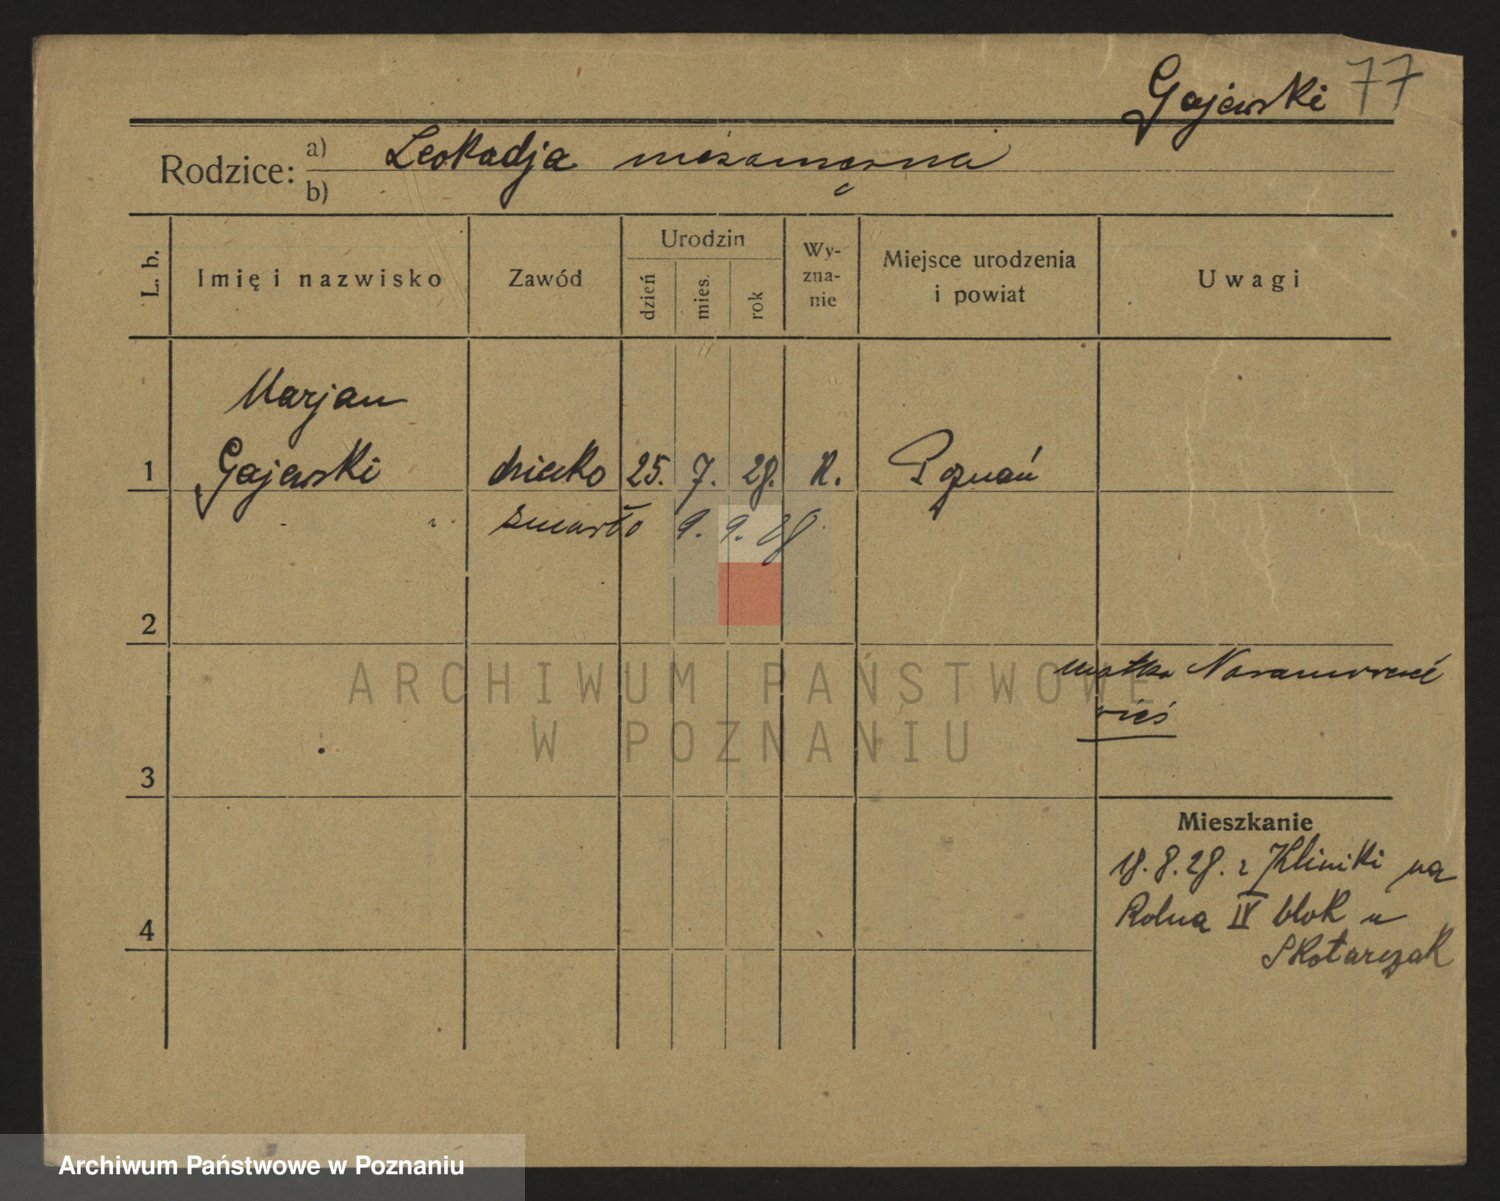 Gajewski 77
Rodzice: a) Leokadja niezamężna
b)
L. b.
Imię i nazwisko
Zawód
Urodzin
dzień
mies.
rok
Wy-
zna-
nie
Miejsce urodzenia
i powiat
Uwagi
Marjan
1 Gajewski dziecko 25. 7. 28. K. Poznań
zmarło 9. 9. 28
2
matka
wieś
3
Mieszkanie
18. 8. 28. z Kliniki na
Rolna IV blok u
Skotarczak
4
ARCHIWUM PAŃSTWOWE
W POZNANIU
Archiwum Państwowe w Poznaniu